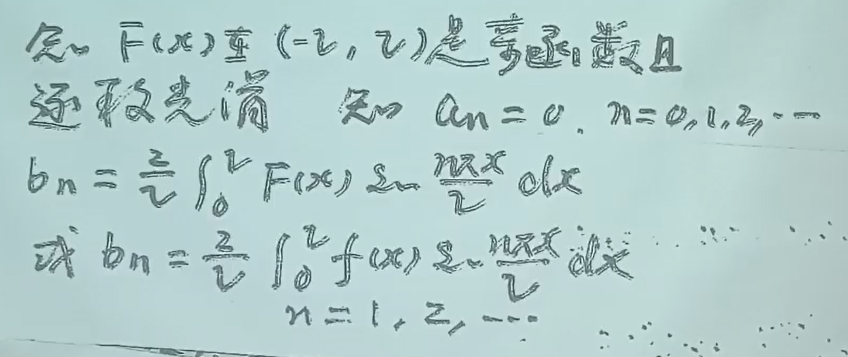 知 F(x)在(-l, l)是奇函数且
逐段光滑 知 an = 0. n=0,1,2,...
bn = 2/l ∫₀ˡ F(x) sin nπx/l dx
或 bn = 2/l ∫₀ˡ f(x) sin nπx/l dx
n = 1, 2, ...